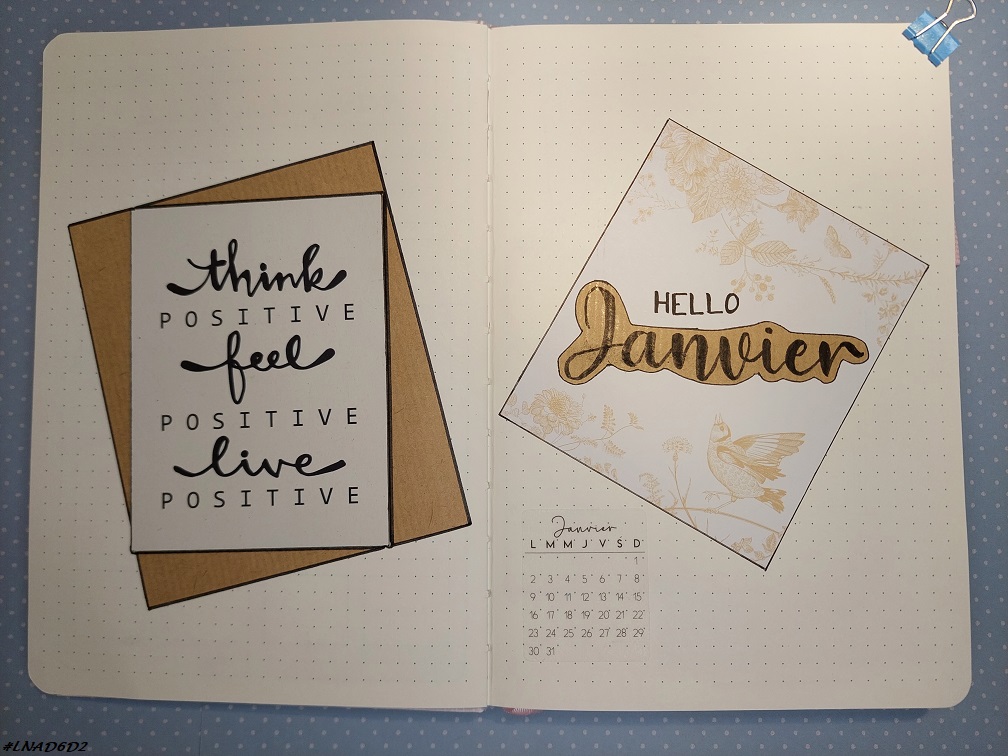 think
POSITIVE
feel
POSITIVE
live
POSITIVE
HELLO
Janvier
Janvier
L M M J V S D
1
2 3 4 5 6 7 8
9 10 11 12 13 14 15
16 17 18 19 20 21 22
23 24 25 26 27 28 29
30 31
#LNAD6D2